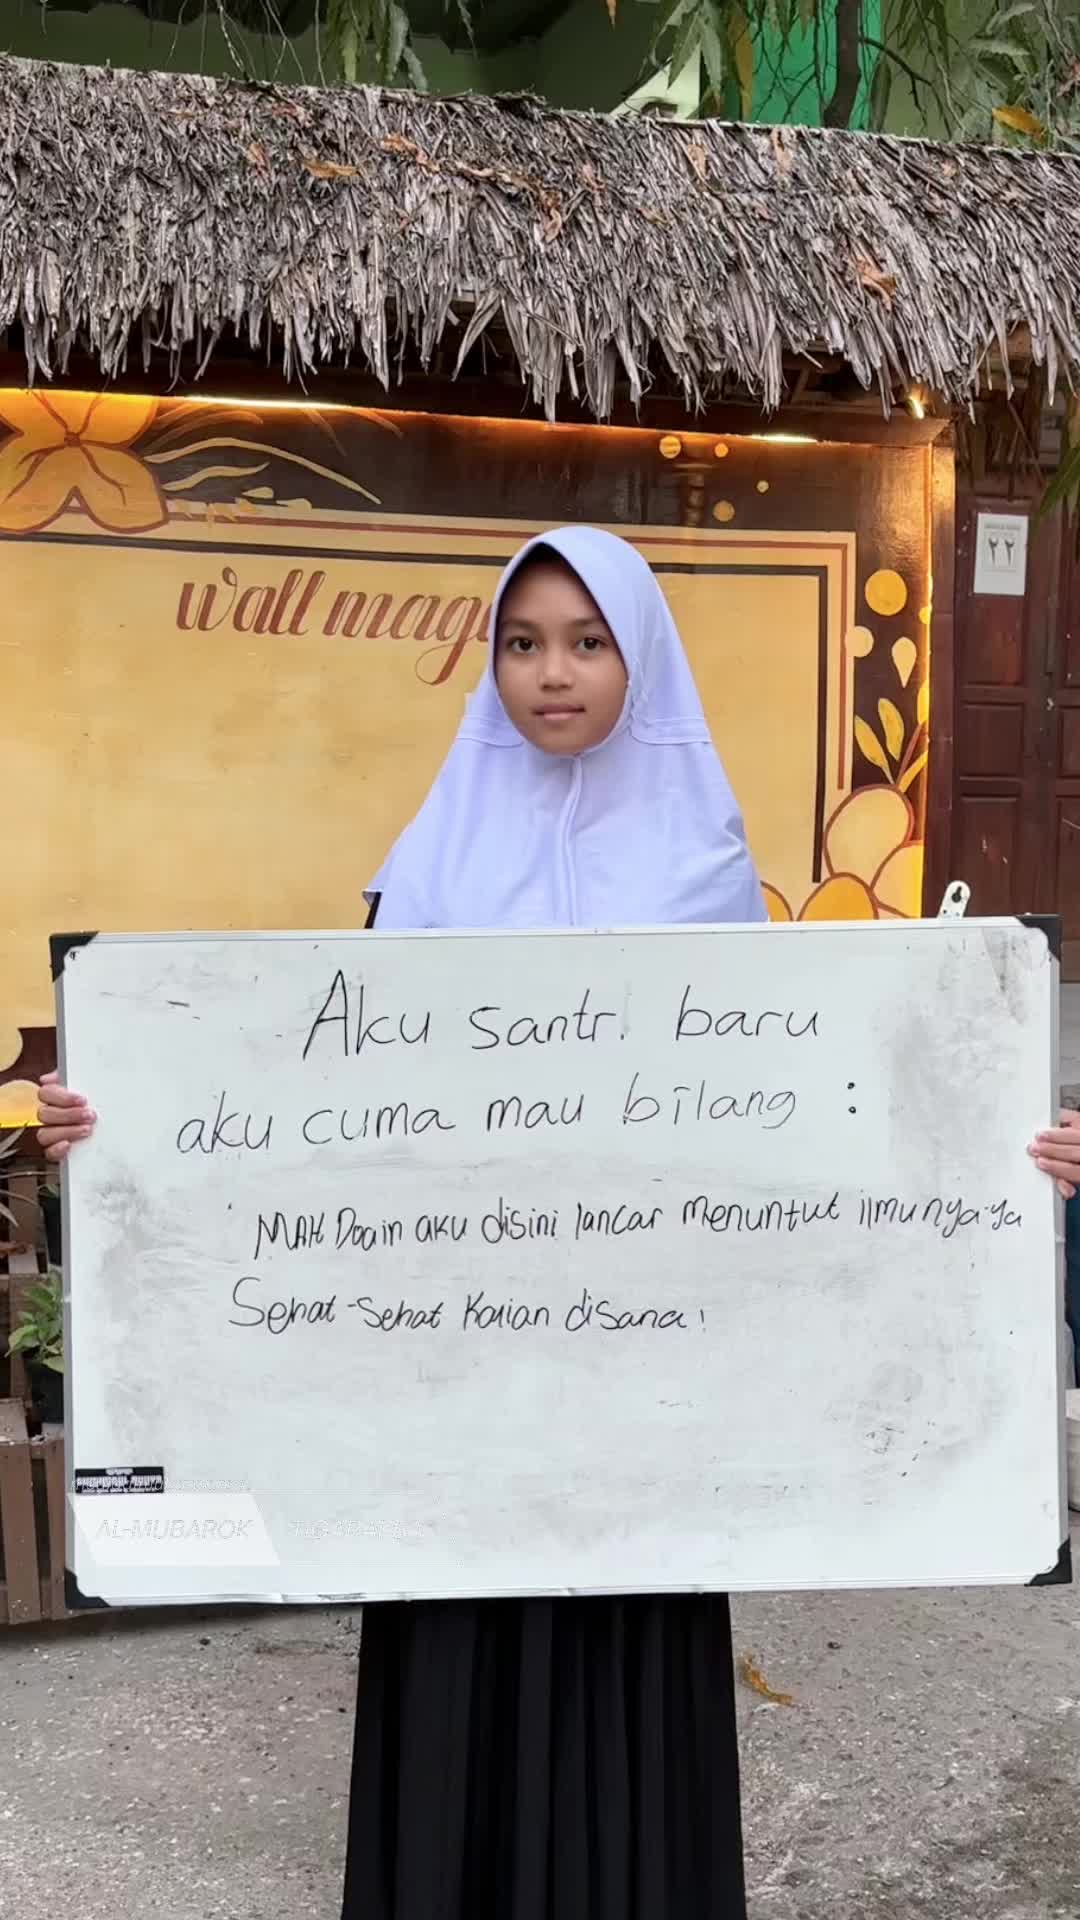 wall mag
٢٢
Aku santri baru
aku cuma mau bilang :
MAK Doain aku disini lancar menuntut ilmunya-ya
Sehat-sehat Kalian disana!
AL-MUBAROK